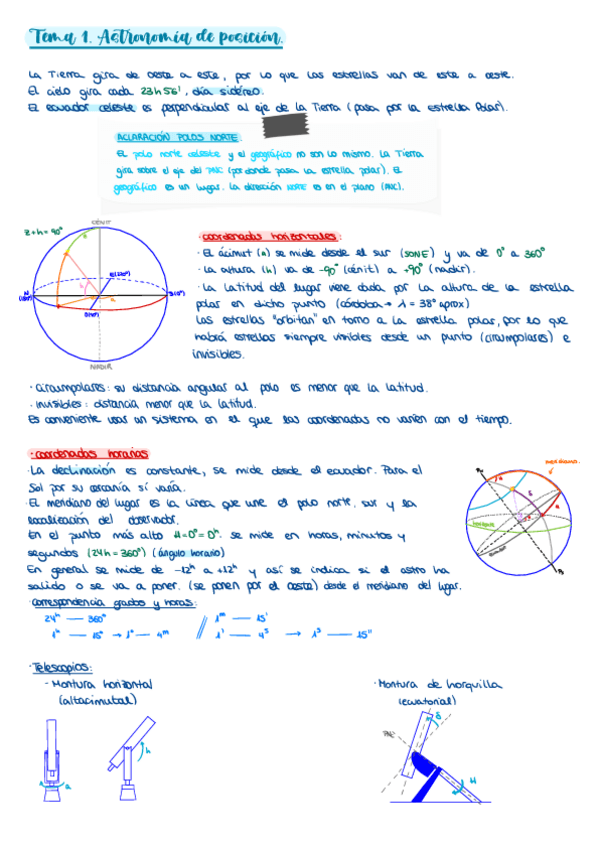 Tema 1. Astronomía de posición.
La Tierra gira de oeste a este, por lo que las estrellas van de este a oeste.
El cielo gira cada 23h 56', día sidéreo.
El ecuador celeste es perpendicular al eje de la Tierra (pasa por la estrella Polar).
ACLARACIÓN POLOS NORTE:
El polo norte celeste y el geográfico no son lo mismo. La Tierra
gira sobre el eje del PNC (por donde pasa la estrella polar). El
geográfico es un lugar. La dirección NORTE es en el plano (PNC).
z + h = 90°
CÉNIT
N
(180°)
E(270°)
S(0°)
O(90°)
NADIR
coordenadas horizontales:
· El ácimut (a) se mide desde el sur (SONE) y va de 0° a 360°
· La altura (h) va de -90° (cénit) a +90° (nadir).
· La latitud del lugar viene dada por la altura de la estrella
polar en dicho punto (córdoba → λ = 38° aprox)
Las estrellas "orbitan" en torno a la estrella polar, por lo que
habrá estrellas siempre visibles desde un punto (circumpolares) e
invisibles.
· circumpolares: su distancia angular al polo es menor que la latitud.
· invisibles: distancia menor que la latitud.
Es conveniente usar un sistema en el que las coordenadas no varíen con el tiempo.
· coordenadas horarias
· La declinación es constante, se mide desde el ecuador. Para el
Sol por su cercanía sí varía.
· El meridiano del lugar es la línea que une el polo norte, sur y la
localización del observador.
En el punto más alto H=0°=0h. se mide en horas, minutos y
segundos (24h = 360°) (ángulo horario)
En general se mide de -12h a +12h y así se indica si el astro ha
salido o se va a poner. (se ponen por el oeste) desde el meridiano del lugar.
meridiano.
· correspondencia grados y horas:
24h — 360° // 1m — 15'
1h — 15° → 1° — 4m 1' — 4s → 1s — 15"
· Telescopios:
- Montura horizontal
(altacimutal)
· Montura de horquilla
(ecuatorial)
a
h
PNC
δ
H